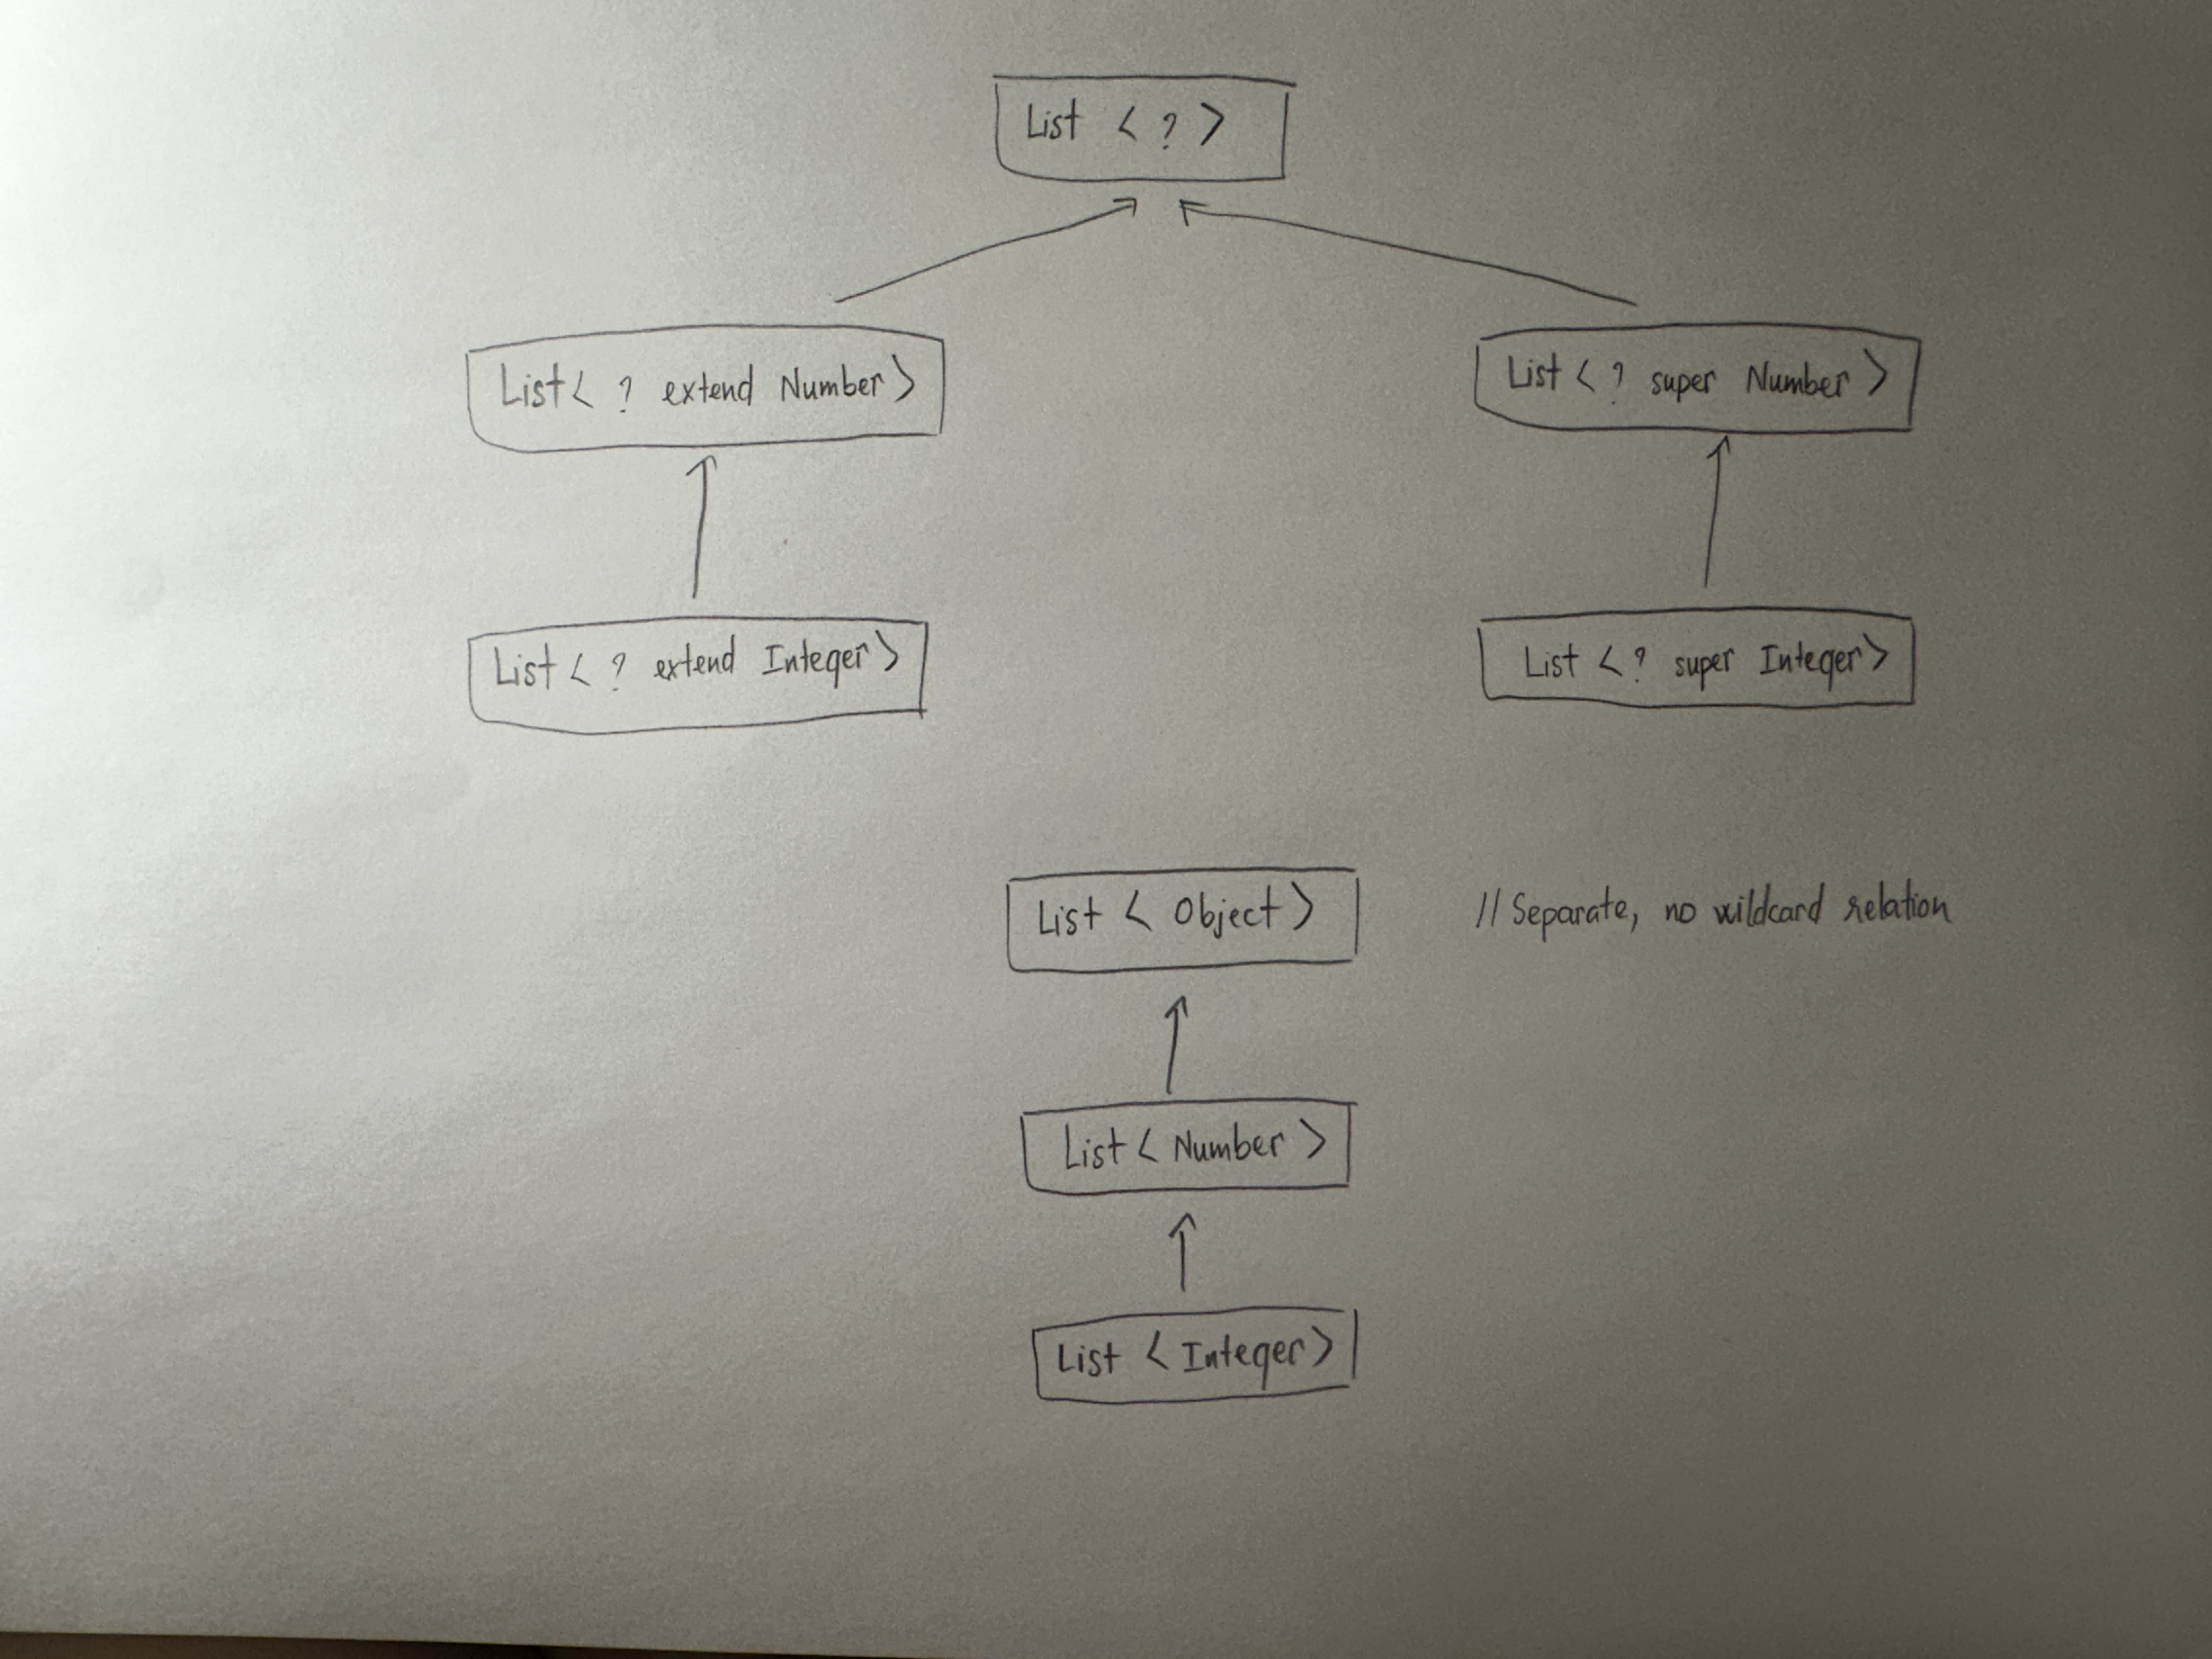 List < ? >
List < ? extend Number >
List < ? super Number >
List < ? extend Integer >
List < ? super Integer >
List < Object >
// Separate, no wildcard relation
List < Number >
List < Integer >